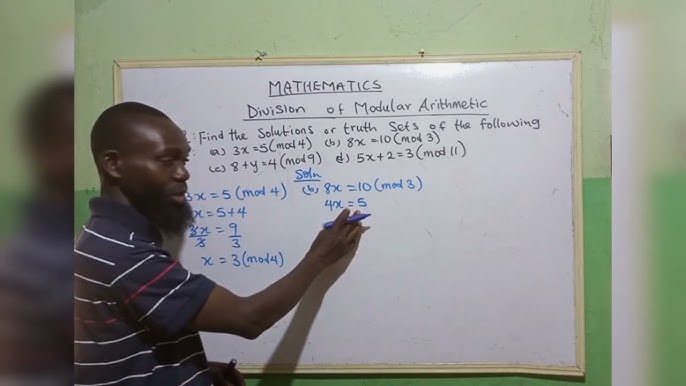 MATHEMATICS
Division of Modular Arithmetic
: Find the Solutions or truth Sets of the following
(a) 3x = 5 (mod 4) (b) 8x = 10 (mod 3)
(c) 8 + y = 4 (mod 9) d) 5x + 2 = 3 (mod 11)
Soln
3x = 5 (mod 4)
x = 5 + 4
3x/3 = 9/3
x = 3 (mod 4)
(b) 8x = 10 (mod 3)
4x = 5